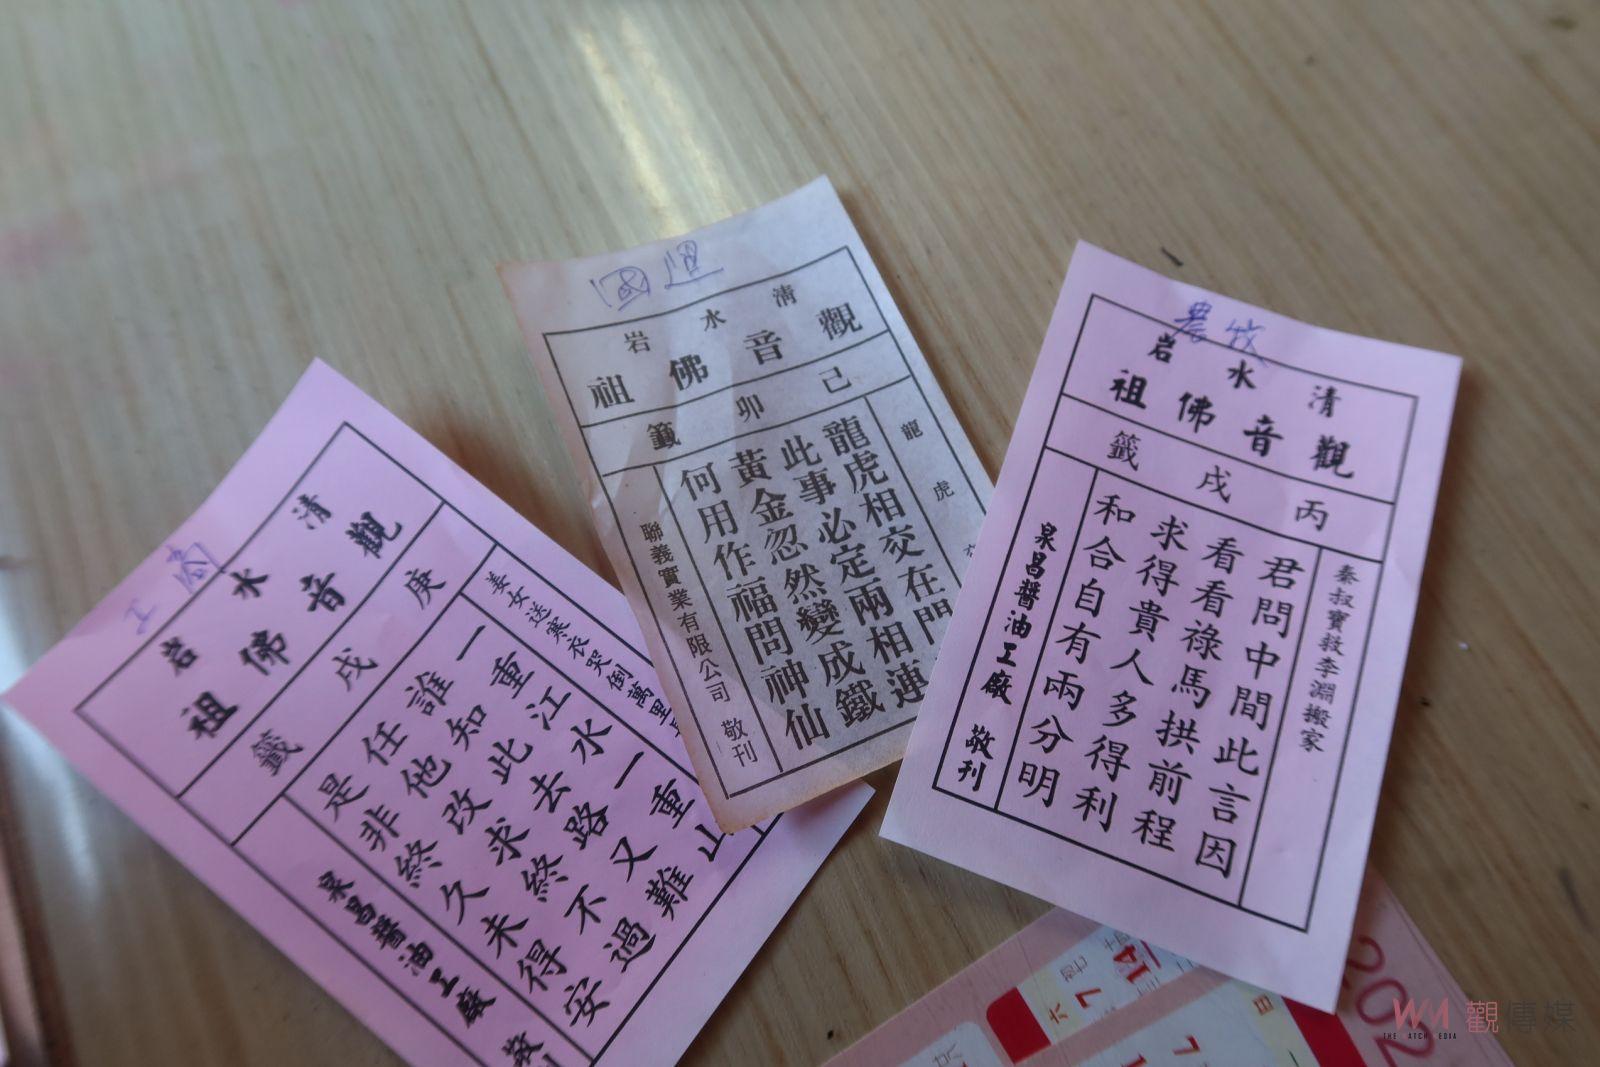 工商
清水岩
觀音佛祖
庚戌籤
姜女送寒衣哭倒萬里
一重江水一重山
誰知此去路又難
任他改求終不過
是非終久未得安
泉昌醬油工廠 敬刊
國運
清水岩
觀音佛祖
己卯籤
龍虎
龍虎相交在門
此事必定兩相連
黃金忽然變成鐵
何用作福問神仙
聯義實業有限公司 敬刊
農牧
清水岩
觀音佛祖
丙戌籤
秦叔寶救李淵搬家
君問中間此言因
看看祿馬拱前程
求得貴人多得利
和合自有兩分明
泉昌醬油工廠 敬刊
202
六 7 14
觀傳媒
THE WATCH MEDIA